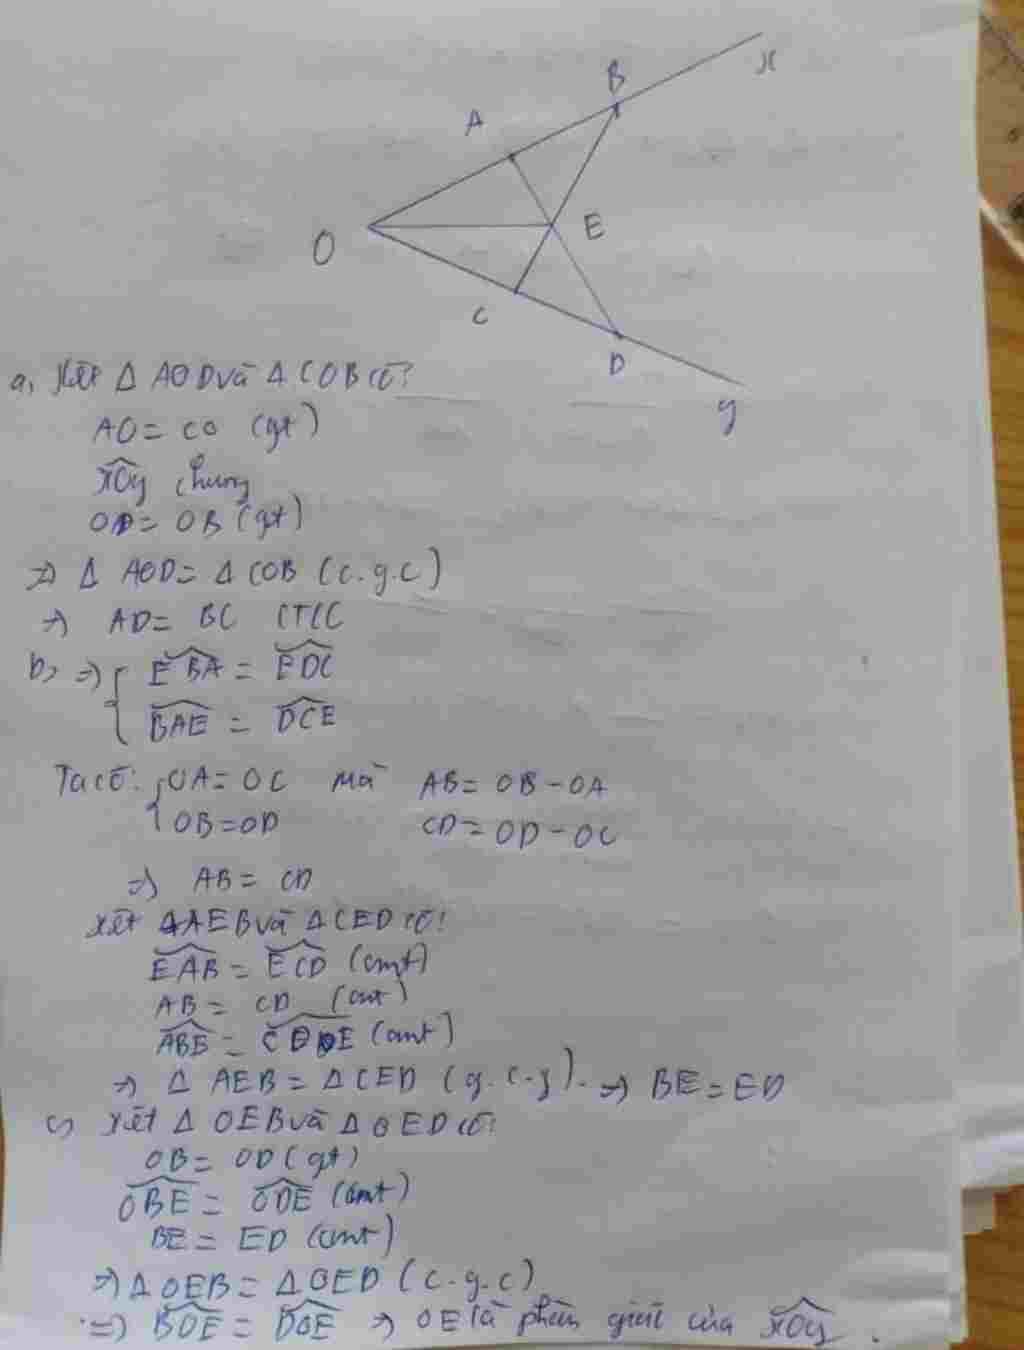 B
x
A
O
E
C
D
y
a, Xét Δ AOD và Δ COB có:
AO = CO (gt)
xOy chung
OD = OB (gt)
=> Δ AOD = Δ COB (c.g.c)
=> AD = BC CTCC
b, => { EBA = EDC
BAE = DCE
Ta có: { OA = OC mà AB = OB - OA
OB = OD CD = OD - OC
=> AB = CD
Xét Δ AEB và Δ CED có:
EAB = ECD (cmt)
AB = CD (cmt)
ABE = CDE (cmt)
=> Δ AEB = Δ CED (g.c.g). => BE = ED
c, Xét Δ OEB và Δ OED có:
OB = OD (gt)
OBE = ODE (cmt)
BE = ED (cmt)
=> Δ OEB = Δ OED (c.g.c)
=> BOE = DOE => OE là phân giác của xOy.